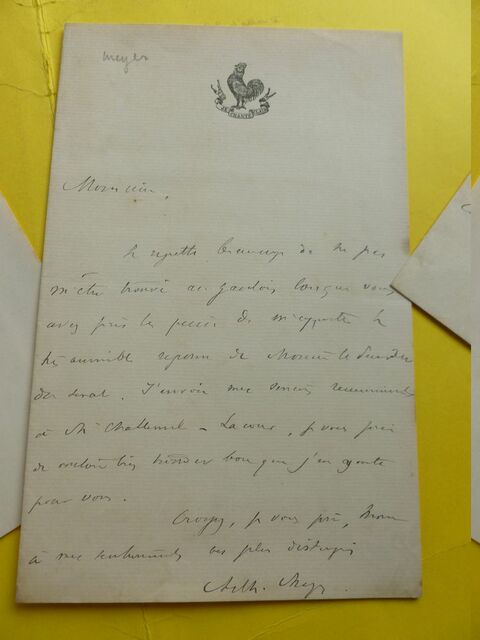 meyer
JE CHANTE CLAIR
Monsieur,
Je regrette beaucoup de ne pas
m'être trouvé au gaulois lorsque vous
avez pris la peine de m'apporter la
très aimable réponse de Monsieur le Président
du Sénat. J'envoie mes sincères remerciements
à Mr Challemel-Lacour, je vous prie
de vouloir bien trouver bon que j'en ajoute
pour vous.
Croyez, je vous prie, Mons
à mes sentiments les plus distingués
Arth. Meyer